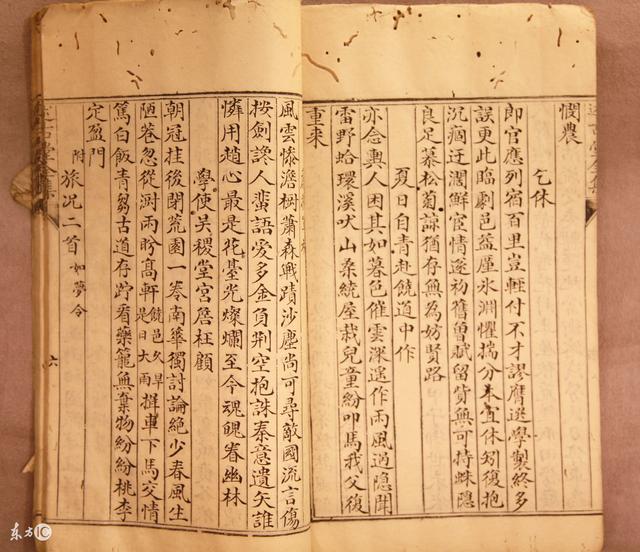 憫農
乞休
即官應列宿百里豈輕付不才謬膺選學製終多
誤更此臨劇邑益廑氷淵懼揣分本宜休矧復抱
沉痼迂濶鮮宦情遂初舊曾賦留貲無可持蛛隱
良足慕松菊諒猶存無為妨賢路
夏日自青赴饒道中作
亦念輿人困其如暮色催雲深遙作雨風過隱聞
雷野蛤環溪吠山桑繞屋栽兒童紛叩馬我父復
重來
風雲慘澹樹蕭森戰蹟沙塵尚可尋敵國流言傷
按劍讒人蜚語愛多金負荆空抱誅秦意遺矢誰
憐用趙心最是花臺光燦爛至今魂魄眷幽林
學使吴稷堂宮詹枉顧
朝冠挂後閉荒園一卷南華獨討論絶少春風生
陋巷忽從澍雨盻高軒饒邑久旱是日大雨擁車下馬交情
篤白飯青芻古道存竚看藥籠無棄物紛紛桃李
定盈門
附旅况二首如夢令
六
东方IC